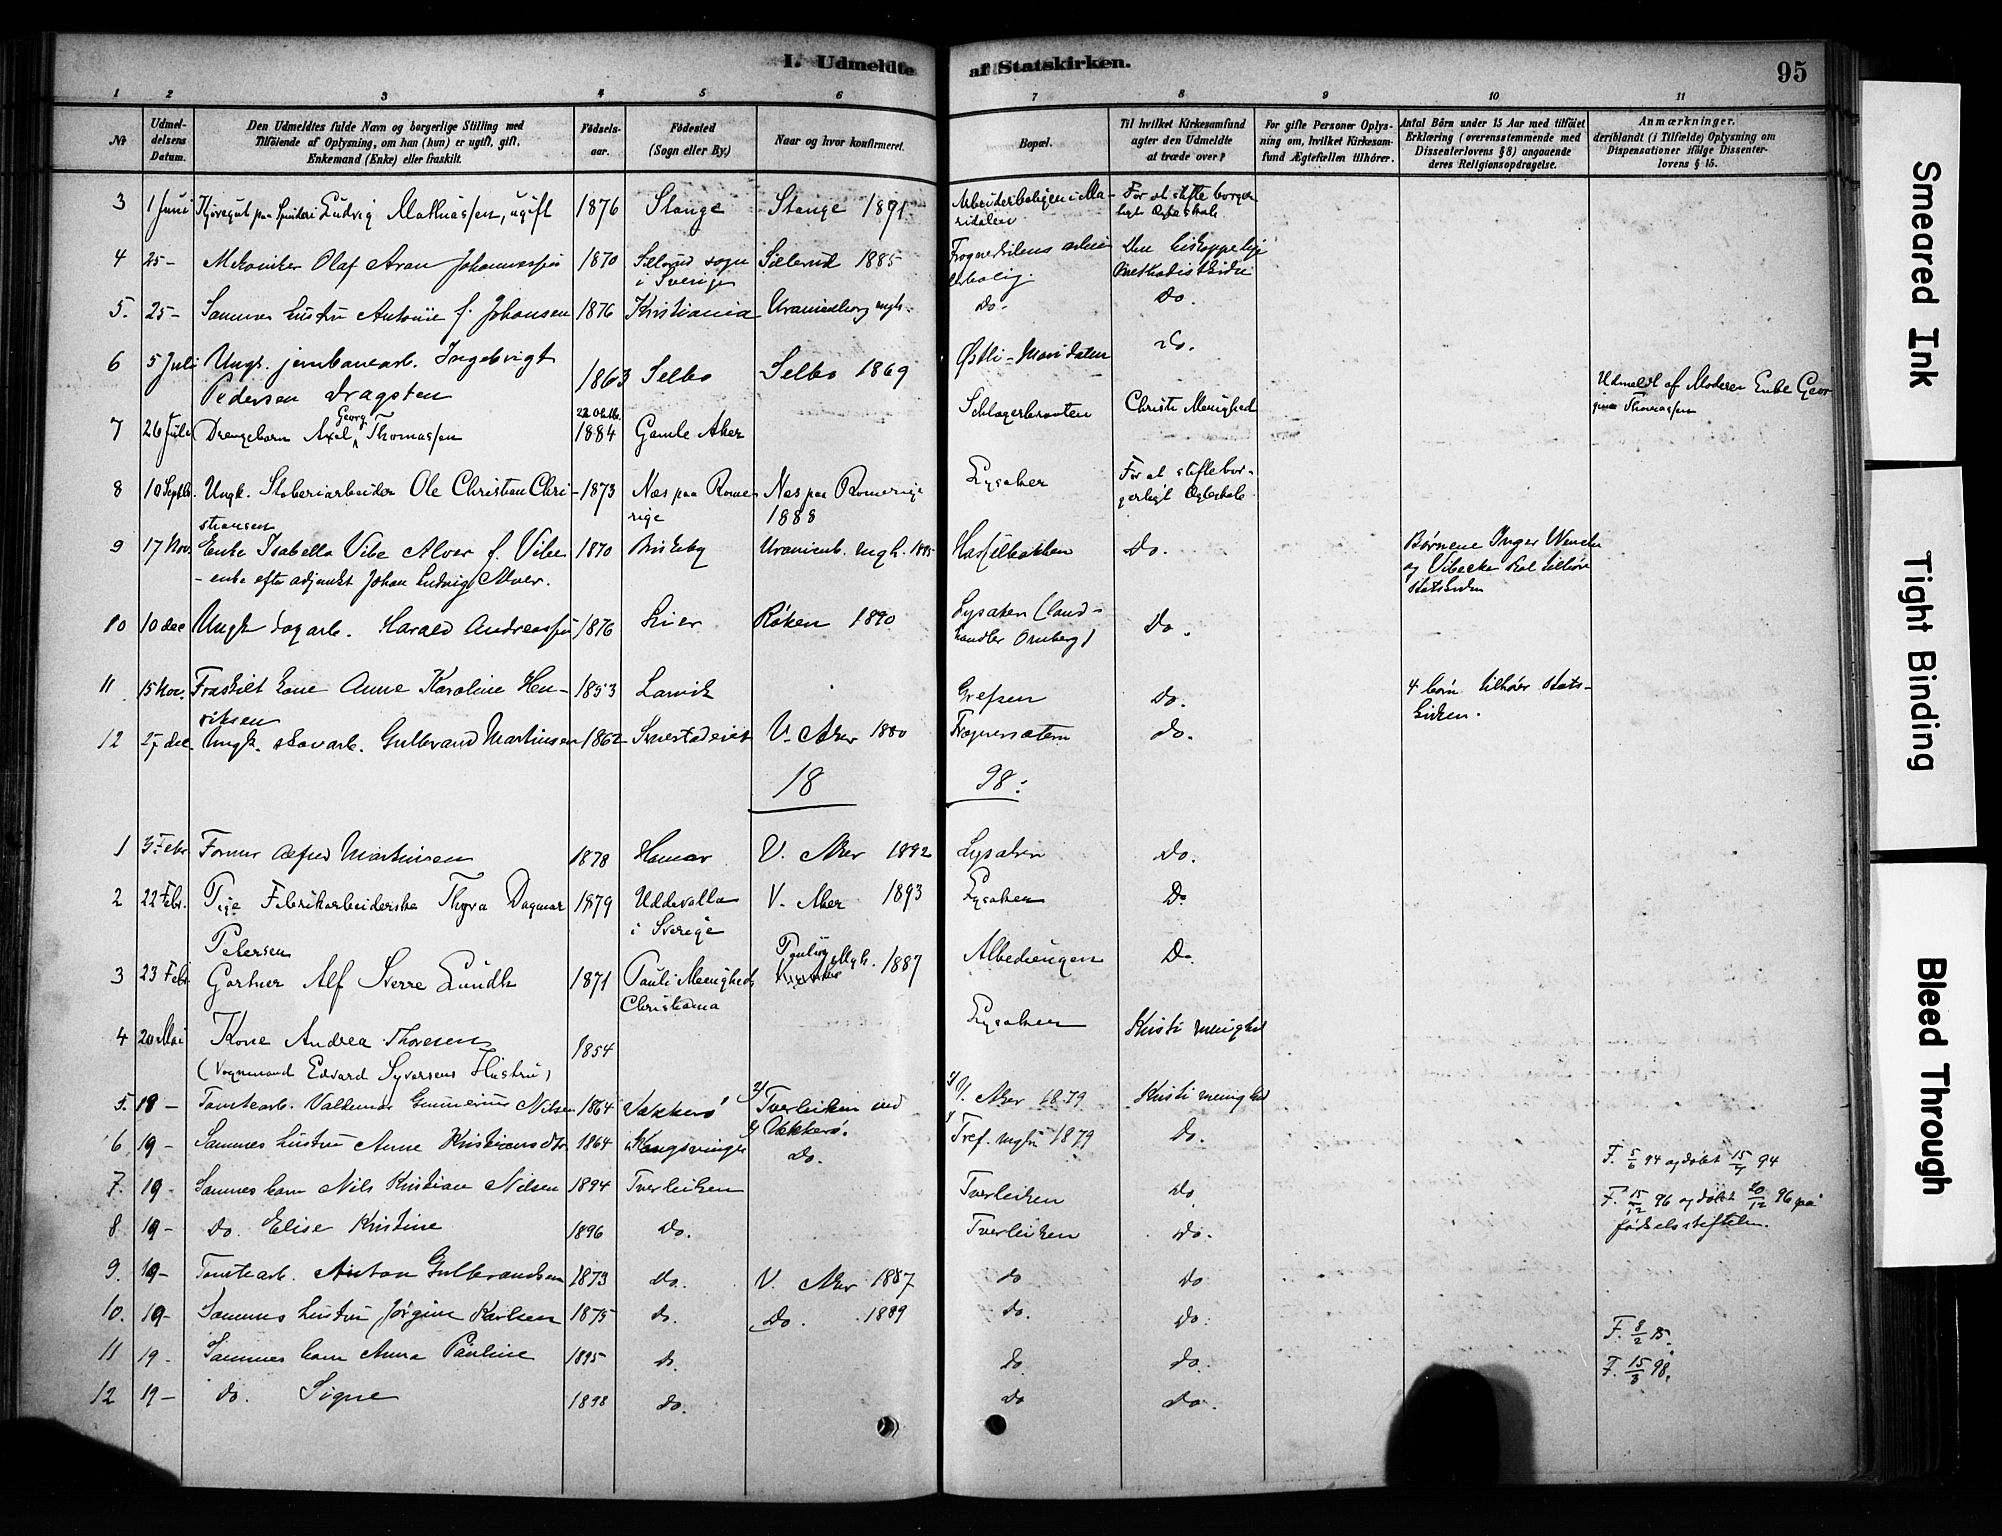 I. Udmeldte af Statskirken.
95
1 2 3 4 5 6 7 8 9 10 11
№
Udmeldelsens Datum.
Den Udmeldtes fulde Navn og borgerlige Stilling med
Tilföiende af Oplysning, om han (hun) er ugift, gift,
Enkemand (Enke) eller fraskilt.
Födselsaar.
Födested
(Sogn eller By.)
Naar og hvor konfirmeret.
Bopæl.
Til hvilket Kirkesamfund
agter den Udmeldte
at træde over?
For gifte Personer Oplysning om, hvilket Kirkesamfund Ægtefællen tilhörer.
Antal Börn under 15 Aar med tilföiet
Erklæring (overensstemmende med
Dissenterlovens § 8) angaaende
deres Religionsopdragelse.
Anmærkninger,
deriblandt (i Tilfælde) Oplysning om
Dispensationer ifölge Dissenterlovens § 15.
3 1 Juni Ludvig Mathiassen, ugift 1876 Stange Stange 1891 For at stifte borger-
ligt
4 25 - Mekaniker Olaf Aran Johannessen 1870 Sillerud sogn Sillerud 1885 Den biskoppelige
i Sverige Methodistkirke
5. 25 - Sammes hustru Antonie f. Johansen 1876 Kristiania Uranienborg mgh. Do. Do.
6 5 Juli Ungk. jernbanearb. Ingebrigt
Pedersen Dragsten 1863 Selbo Selbo 1869 Østli - Maridalen Do.
7 26 Juli Drengebarn Axel Georg Thomassen 22 Oktb. 1884 Gamle Aker Christi Menighed Udmeldt af Moderen Enke Geor-
gine Thomassen
8 10 Septbr. Ungk. Ole Christian Chri-
stiansen 1873 Nes paa Rome-
rige Nes paa Romerige
1888 Lysaker For at stifte bor-
gerligt
9 17 Nov. Enke Isabella Vibe Alver f. Vibe 1870 Briskeby Uranienb. mgh. Do. Børnene Inger Wenche
- enke efter adjunkt Johan Ludvig Alver. og Vibecke skal tilhøre
statskirken
10 10 dec Ungk dagarb. Harald Andreassen 1876 Lier Røken 1890 Lysaker (land-
handler Do.
11 15 Nov. Fraskilt kone Anne Karoline Hen-
riksen 1853 Larvik Grefsen Do. 4 børn tilhører stats-
kirken.
12 27 dec. Ungk. skovarb. Gulbrand Martinsen 1862 V. Aker 1880 Frognersæteren do.
18 98:
1 3 Febr Former Alfred Martinsen 1878 Hamar V. Aker 1892 Lysaker Do.
2 22 Febr. Pige Fabrikarbeiderske Thyra Dagmar
Petersen 1879 Uddevalla
i Sverige V. Aker 1893 Lysaker Do
3 23 Febr Gartner Alf Sverre Lundh 1871 Pauli Menighed,
Christiania Mgh. 1887 Do.
4 20 Mai Kone Andrea Thoresen
(Vognmand Edvard Syversens Hustru) 1854 Lysaker Kristi menighed
5. 19 - Tomtearb. Valdemar Gunnerius Nilsen 1864 Vækkerø Tverleiken ved
Vækkerø. V. Aker 1879 Kristi menighed
6 19 - Sammes hustru Anne Kristiansdtr 1864 Kongsvinger Do. Tref. mgh 1879 Do.
7. 19 - Sammes barn Nils Kristian Nilsen 1894 Tverleiken Tverleiken Do F. 5/6 94 og døbt 15/7 94
8. 19 - Do. Elise Kristine 1896 Do. Tverleiken Do. F. 15/12 96 og døbt 20/12 96 på
fødselsstiftelsen.
9. 19 - Tomtearb. Anton Gulbrandsen 1873 Do. V. Aker 1887 do Do
10. 19 - Sammes hustru Jørgine Karlsen 1875 Do. Do. 1889 Do. Do.
11 19 - Sammes barn Anna Pauline 1895 Do. Do Do. F. 8/2 95.
12 19 - Do. Signe 1898 Do. Do Do. F. 15/3 98.
Smeared Ink
Tight Binding
Bleed Through